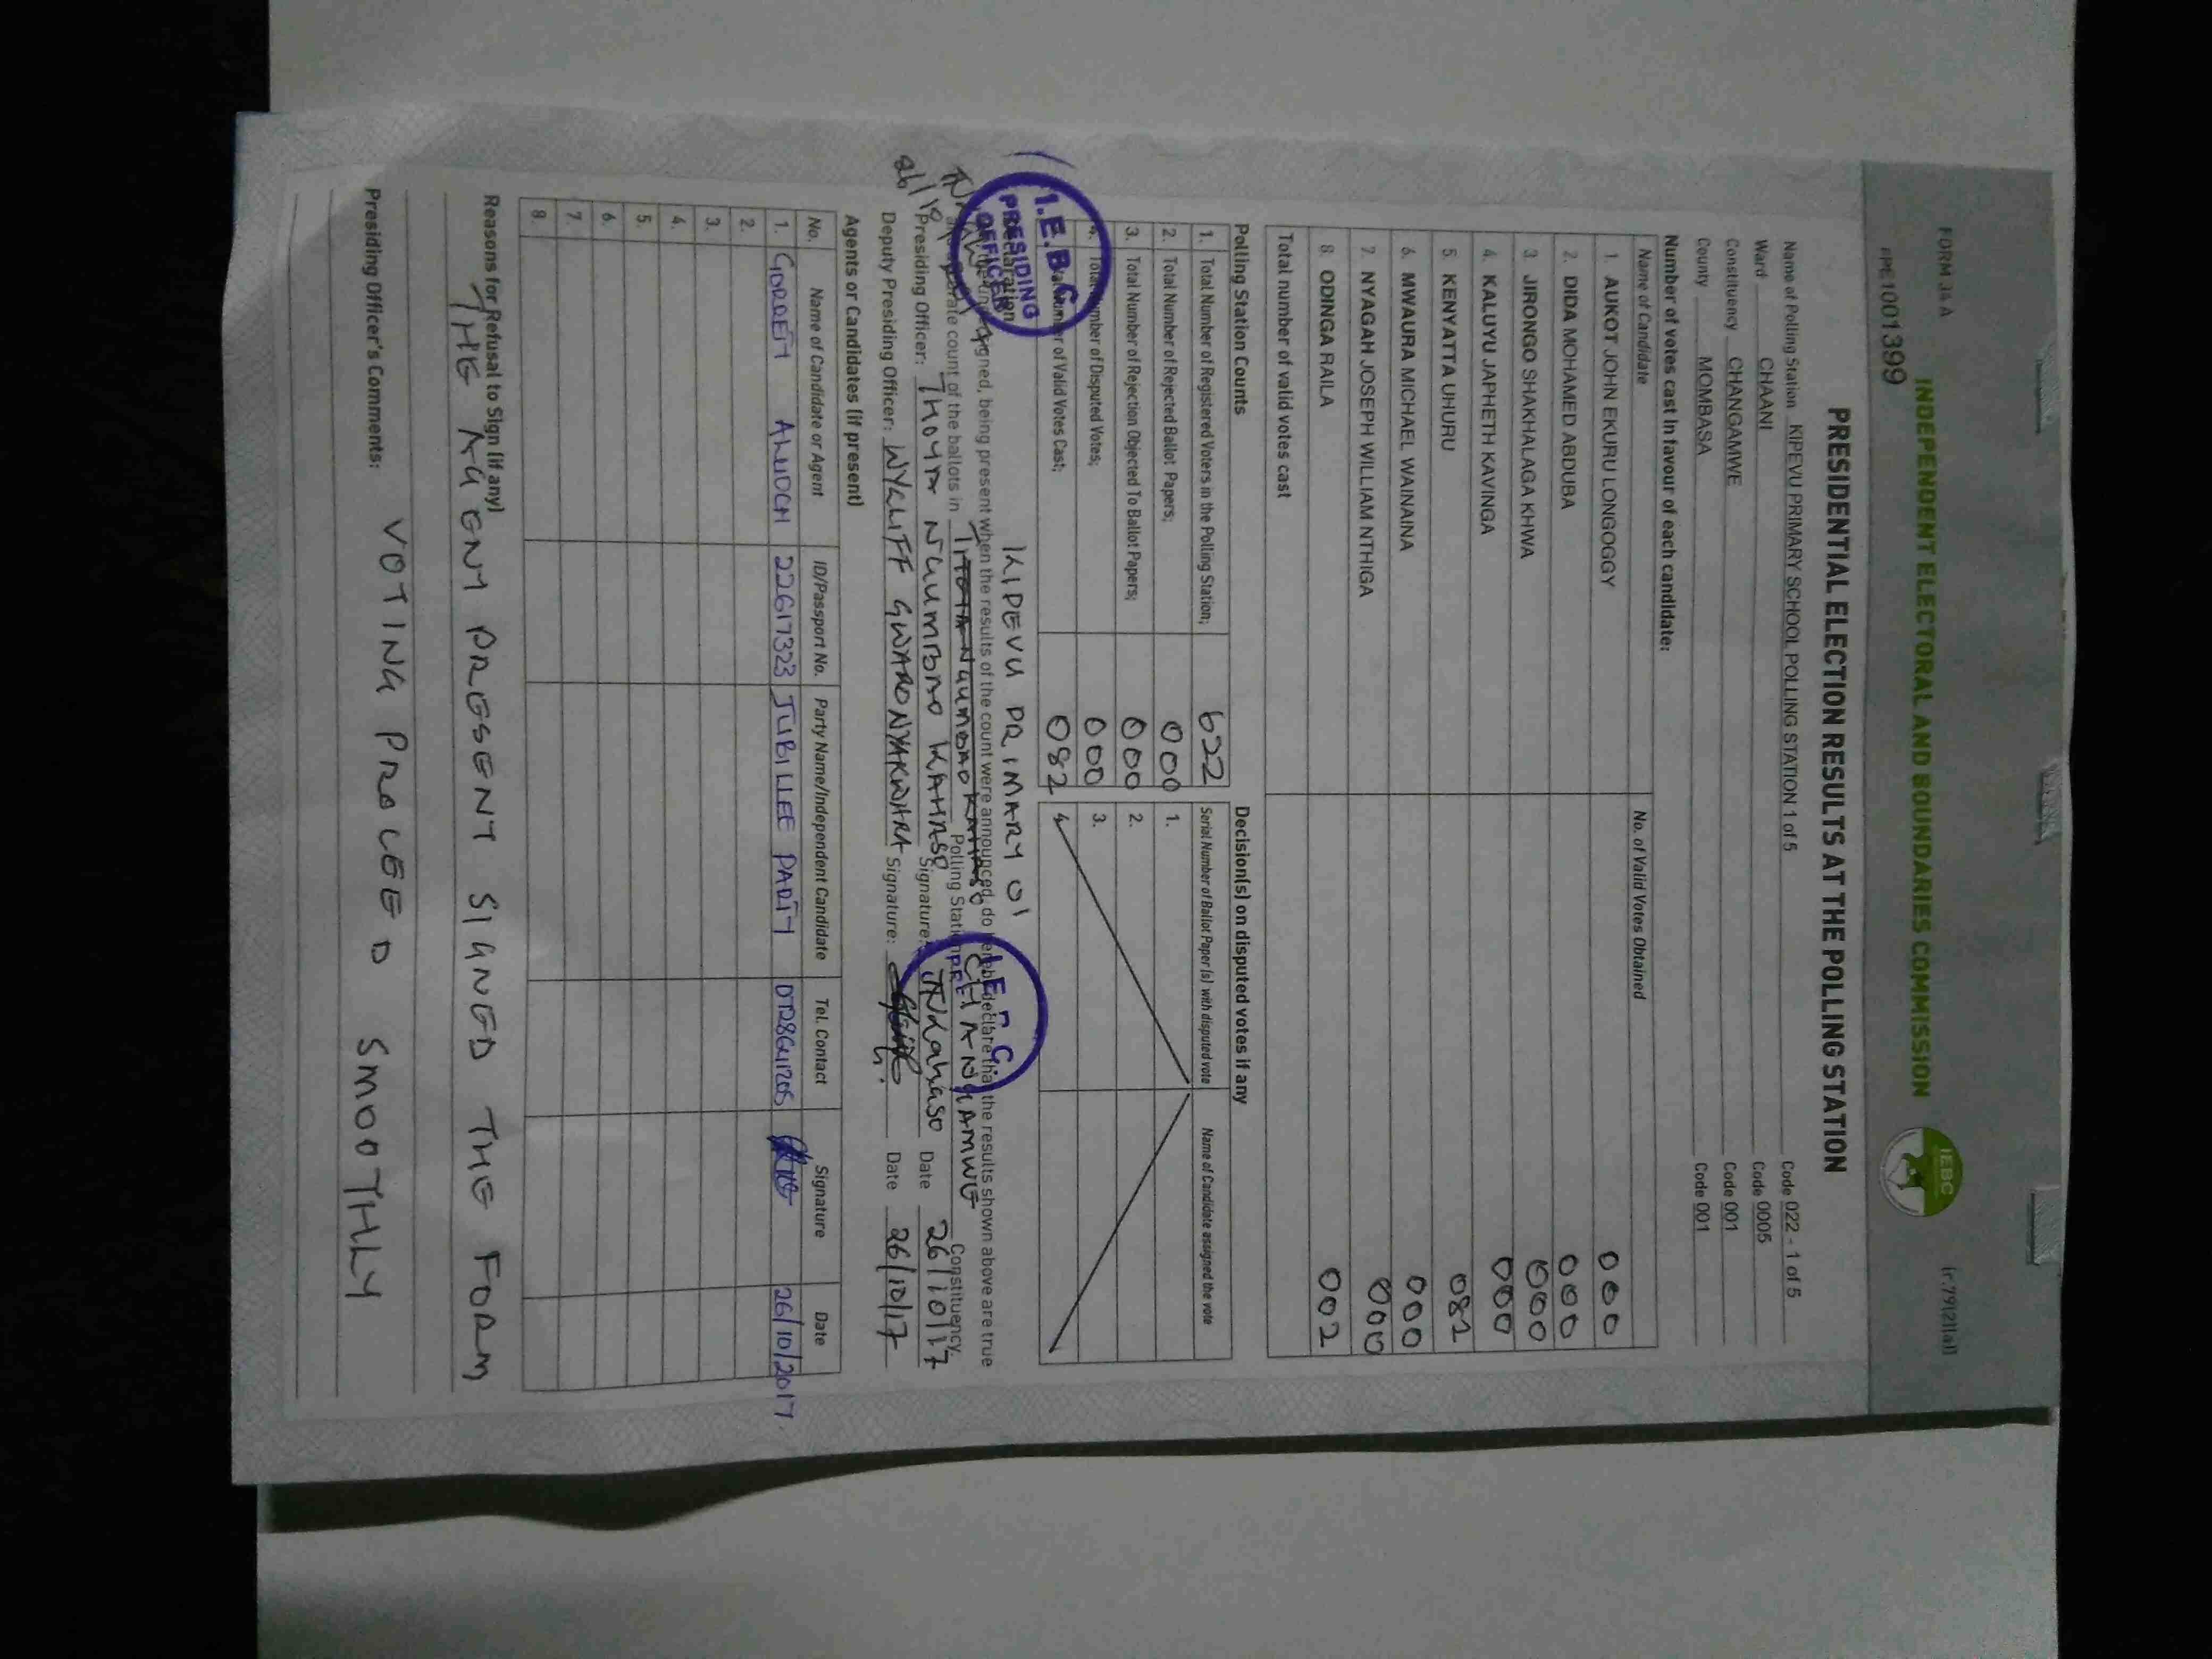 FORM 34 A
(r.79(2)(a))
INDEPENDENT ELECTORAL AND BOUNDARIES COMMISSION
IEBC
PRE1001399
PRESIDENTIAL ELECTION RESULTS AT THE POLLING STATION
Name of Polling Station KIPEVU PRIMARY SCHOOL POLLING STATION 1 of 5 Code 022 - 1 of 5
Ward CHAANI Code 0005
Constituency CHANGAMWE Code 001
County MOMBASA Code 001
Number of votes cast in favour of each candidate:
Name of Candidate No. of Valid Votes Obtained
1. AUKOT JOHN EKURU LONGOGGY 000
2. DIDA MOHAMED ABDUBA 000
3 JIRONGO SHAKHALAGA KHWA 000
4. KALUYU JAPHETH KAVINGA 000
5 KENYATTA UHURU 082
6. MWAURA MICHAEL WAINAINA 000
7. NYAGAH JOSEPH WILLIAM NTHIGA 000
8. ODINGA RAILA 002
Total number of valid votes cast
Polling Station Counts
1. Total Number of Registered Voters in the Polling Station; 622
2. Total Number of Rejected Ballot Papers; 000
3. Total Number of Rejection Objected To Ballot Papers; 000
4. Total Number of Disputed Votes; 000
Number of Valid Votes Cast; 082
Decision(s) on disputed votes if any
Serial Number of Ballot Paper (s) with disputed vote Name of Candidate assigned the vote
1.
2.
3.
4
I.E.B.C
PRESIDING
OFFICER
KIPEVU PRIMARY 01
Declaration
signed, being present when the results of the count were announced, do hereby declare that the results shown above are true
accurate count of the ballots in Polling Station CHANGAMWE Constituency.
Presiding Officer: THOYA NGUMBAO KAHASO Signature: Date 26/10/17
Deputy Presiding Officer: WYCLIFF GWARO NYAKWARA Signature: Date 26/10/17
Agents or Candidates (if present)
No. Name of Candidate or Agent ID/Passport No. Party Name/Independent Candidate Tel. Contact Signature Date
1. GORRETY ALUOCH 22617323 JUBILLEE PARTY 26/10/2017
2.
3.
4.
5.
6.
7.
8.
Reasons for Refusal to Sign (if any)
THE AGENT PRESENT SIGNED THE FORM
Presiding Officer's Comments: VOTING PROCEED SMOOTHLY